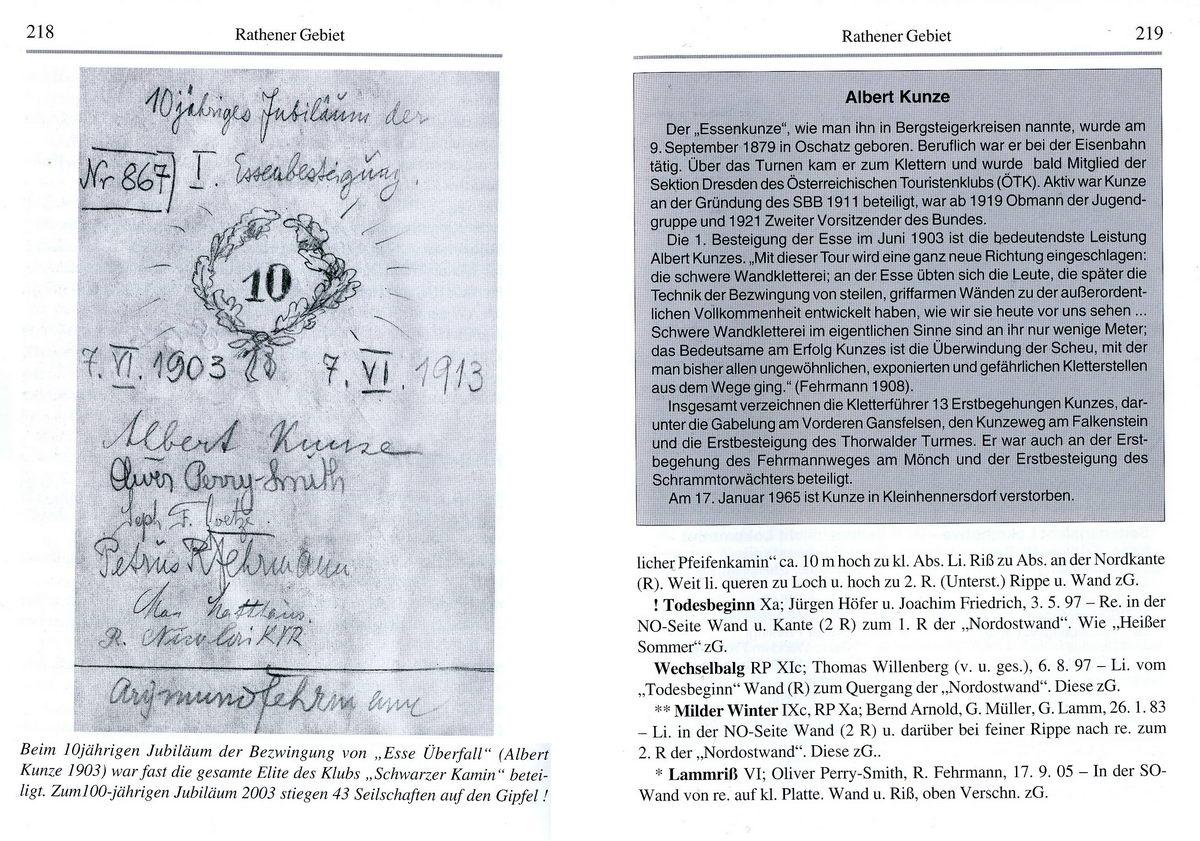 218
Rathener Gebiet
10jähriges Jubiläum der
Nr 867 I. Essenbesteigung.
10
7. VI. 1903 7. VI. 1913
Albert Kunze
Oliver Perry-Smith
F.
Petrus R Fehrmann
Max Matthäus.
R. Nicolai KVR
Arymund Fehrmann
Beim 10jährigen Jubiläum der Bezwingung von „Esse Überfall“ (Albert
Kunze 1903) war fast die gesamte Elite des Klubs „Schwarzer Kamin“ betei-
ligt. Zum100-jährigen Jubiläum 2003 stiegen 43 Seilschaften auf den Gipfel !
Rathener Gebiet
219
Albert Kunze
Der „Essenkunze“, wie man ihn in Bergsteigerkreisen nannte, wurde am
9. September 1879 in Oschatz geboren. Beruflich war er bei der Eisenbahn
tätig. Über das Turnen kam er zum Klettern und wurde bald Mitglied der
Sektion Dresden des Österreichischen Touristenklubs (ÖTK). Aktiv war Kunze
an der Gründung des SBB 1911 beteiligt, war ab 1919 Obmann der Jugend-
gruppe und 1921 Zweiter Vorsitzender des Bundes.
Die 1. Besteigung der Esse im Juni 1903 ist die bedeutendste Leistung
Albert Kunzes. „Mit dieser Tour wird eine ganz neue Richtung eingeschlagen:
die schwere Wandkletterei; an der Esse übten sich die Leute, die später die
Technik der Bezwingung von steilen, griffarmen Wänden zu der außerordent-
lichen Vollkommenheit entwickelt haben, wie wir sie heute vor uns sehen ...
Schwere Wandkletterei im eigentlichen Sinne sind an ihr nur wenige Meter;
das Bedeutsame am Erfolg Kunzes ist die Überwindung der Scheu, mit der
man bisher allen ungewöhnlichen, exponierten und gefährlichen Kletterstellen
aus dem Wege ging.“ (Fehrmann 1908).
Insgesamt verzeichnen die Kletterführer 13 Erstbegehungen Kunzes, dar-
unter die Gabelung am Vorderen Gansfelsen, den Kunzeweg am Falkenstein
und die Erstbesteigung des Thorwalder Turmes. Er war auch an der Erst-
begehung des Fehrmannweges am Mönch und der Erstbesteigung des
Schrammtorwächters beteiligt.
Am 17. Januar 1965 ist Kunze in Kleinhennersdorf verstorben.
licher Pfeifenkamin“ ca. 10 m hoch zu kl. Abs. Li. Riß zu Abs. an der Nordkante
(R). Weit li. queren zu Loch u. hoch zu 2. R. (Unterst.) Rippe u. Wand zG.
! Todesbeginn Xa; Jürgen Höfer u. Joachim Friedrich, 3. 5. 97 – Re. in der
NO-Seite Wand u. Kante (2 R) zum 1. R der „Nordostwand“. Wie „Heißer
Sommer“ zG.
Wechselbalg RP XIc; Thomas Willenberg (v. u. ges.), 6. 8. 97 – Li. vom
„Todesbeginn“ Wand (R) zum Quergang der „Nordostwand“. Diese zG.
** Milder Winter IXc, RP Xa; Bernd Arnold, G. Müller, G. Lamm, 26. 1. 83
– Li. in der NO-Seite Wand (2 R) u. darüber bei feiner Rippe nach re. zum
2. R der „Nordostwand“. Diese zG..
* Lammriß VI; Oliver Perry-Smith, R. Fehrmann, 17. 9. 05 – In der SO-
Wand von re. auf kl. Platte. Wand u. Riß, oben Verschn. zG.